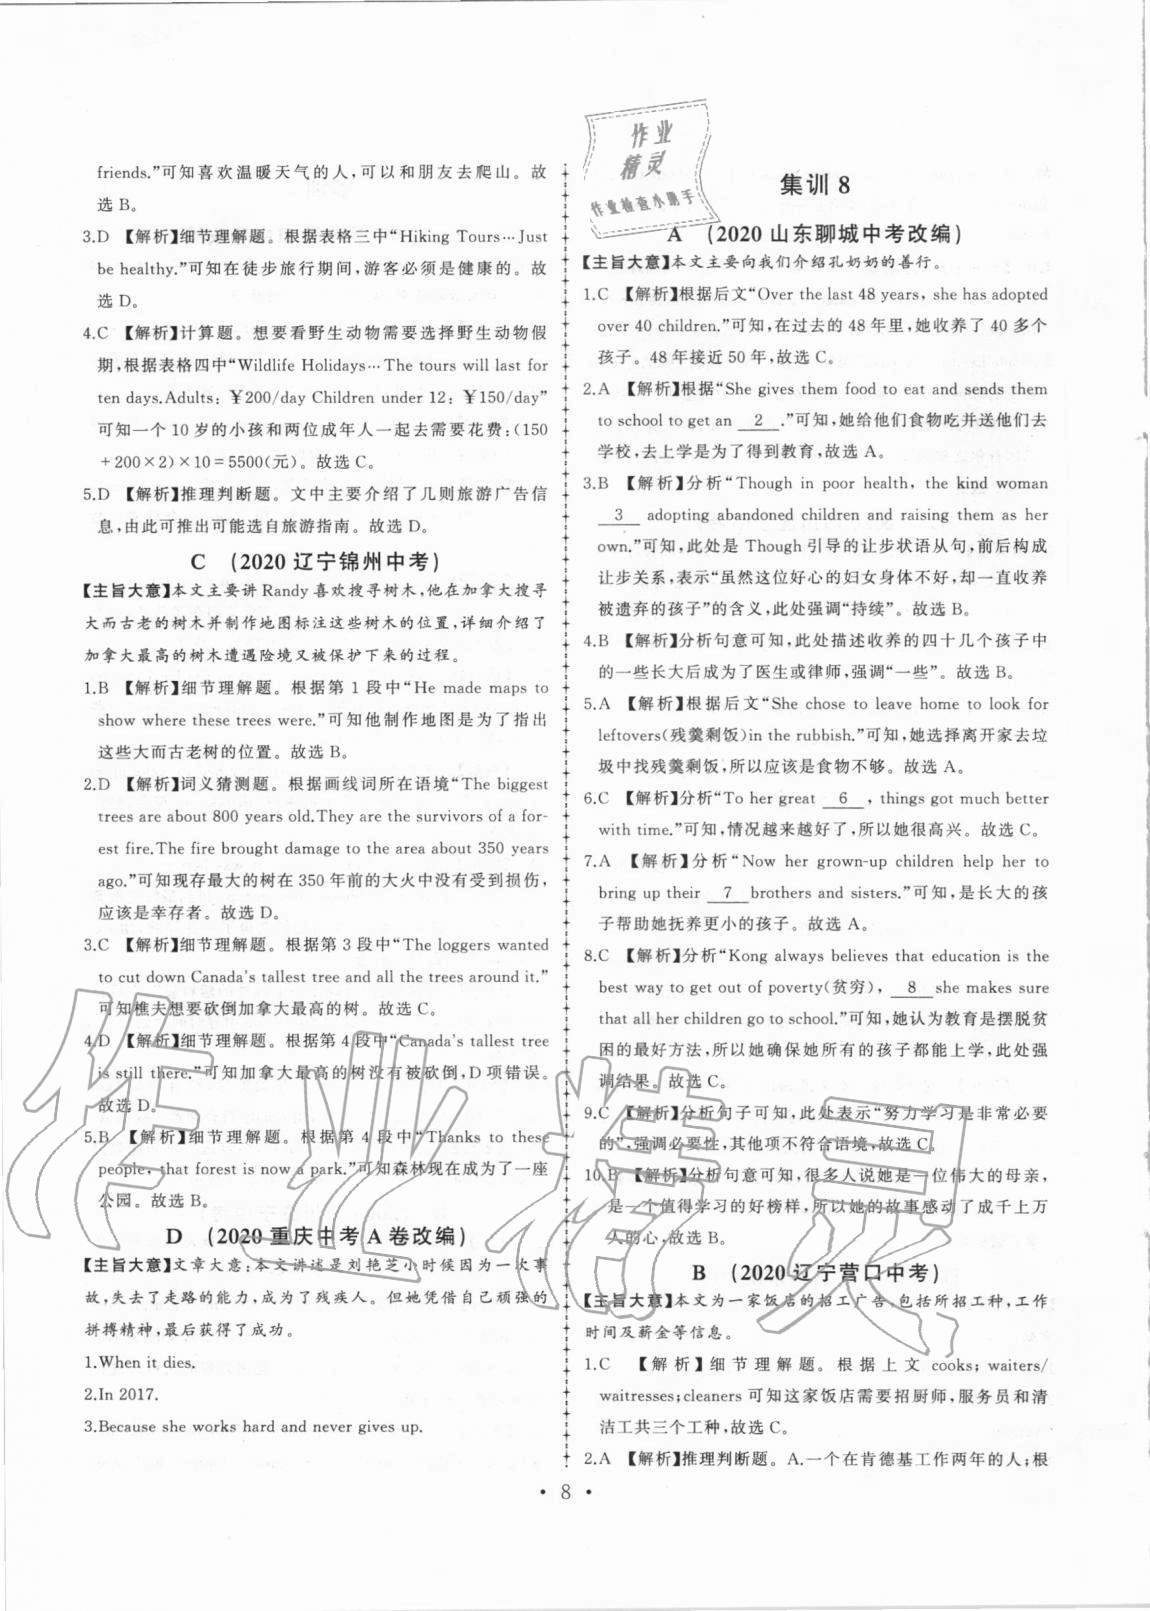 friends.”可知喜欢温暖天气的人，可以和朋友去爬山。故
选 B。
3.D 【解析】细节理解题。根据表格三中“Hiking Tours…Just
be healthy.”可知在徒步旅行期间，游客必须是健康的。故
选 D。
4.C 【解析】计算题。想要看野生动物需要选择野生动物假
期，根据表格四中“Wildlife Holidays…The tours will last for
ten days.Adults: ￥200/day Children under 12: ￥150/day”
可知一个 10 岁的小孩和两位成年人一起去需要花费：(150
+200×2)×10=5500(元)。故选 C。
5.D 【解析】推理判断题。文中主要介绍了几则旅游广告信
息，由此可推出可能选自旅游指南。故选 D。
C (2020 辽宁锦州中考)
【主旨大意】本文主要讲 Randy 喜欢搜寻树木，他在加拿大搜寻
大而古老的树木并制作地图标注这些树木的位置，详细介绍了
加拿大最高的树木遭遇险境又被保护下来的过程。
1.B 【解析】细节理解题。根据第 1 段中“He made maps to
show where these trees were.”可知他制作地图是为了指出
这些大而古老树的位置。故选 B。
2.D 【解析】词义猜测题。根据画线词所在语境“The biggest
trees are about 800 years old.They are the survivors of a for-
est fire.The fire brought damage to the area about 350 years
ago.”可知现存最大的树在 350 年前的大火中没有受到损伤，
应该是幸存者。故选 D。
3.C 【解析】细节理解题。根据第 3 段中“The loggers wanted
to cut down Canada’s tallest tree and all the trees around it.”
可知樵夫想要砍倒加拿大最高的树。故选 C。
4.D 【解析】细节理解题。根据第 4 段中“Canada’s tallest tree
is still there.”可知加拿大最高的树没有被砍倒，D 项错误。
故选 D。
5.B 【解析】细节理解题。根据第 4 段中“Thanks to these
people, that forest is now a park.”可知森林现在成为了一座
公园。故选 B。
D (2020 重庆中考 A 卷改编)
【主旨大意】文章大意：本文讲述是刘艳芝小时候因为一次事
故，失去了走路的能力，成为了残疾人。但她凭借自己顽强的
拼搏精神，最后获得了成功。
1.When it dies.
2.In 2017.
3.Because she works hard and never gives up.
作业
精灵
作业检查小助手
集训 8
A (2020 山东聊城中考改编)
【主旨大意】本文主要向我们介绍孔奶奶的善行。
1.C 【解析】根据后文“Over the last 48 years, she has adopted
over 40 children.”可知，在过去的 48 年里，她收养了 40 多个
孩子。48 年接近 50 年，故选 C。
2.A 【解析】根据“She gives them food to eat and sends them
to school to get an 2 .”可知，她给他们食物吃并送他们去
学校，去上学是为了得到教育，故选 A。
3.B 【解析】分析“Though in poor health, the kind woman
3 adopting abandoned children and raising them as her
own.”可知，此处是 Though 引导的让步状语从句，前后构成
让步关系，表示“虽然这位好心的妇女身体不好，却一直收养
被遗弃的孩子”的含义，此处强调“持续”。故选 B。
4.B 【解析】分析句意可知，此处描述收养的四十几个孩子中
的一些长大后成为了医生或律师，强调“一些”。故选 B。
5.A 【解析】根据后文“She chose to leave home to look for
leftovers(残羹剩饭)in the rubbish.”可知，她选择离开家去垃
圾中找残羹剩饭，所以应该是食物不够。故选 A。
6.C 【解析】分析“To her great 6 , things got much better
with time.”可知，情况越来越好了，所以她很高兴。故选 C。
7.A 【解析】分析“Now her grown-up children help her to
bring up their 7 brothers and sisters.”可知，是长大的孩
子帮助她抚养更小的孩子。故选 A。
8.C 【解析】分析“Kong always believes that education is the
best way to get out of poverty(贫穷), 8 she makes sure
that all her children go to school.”可知，她认为教育是摆脱贫
困的最好方法，所以她确保她所有的孩子都能上学，此处强
调结果。故选 C。
9.C 【解析】分析句子可知，此处表示“努力学习是非常必要
的”，强调必要性，其他项不符合语境，故选 C。
10.B 【解析】分析句意可知，很多人说她是一位伟大的母亲，
是一个值得学习的好榜样，所以她的故事感动了成千上万
人的心，故选 B。
B (2020 辽宁营口中考)
【主旨大意】本文为一家饭店的招工广告，包括所招工种，工作
时间及薪金等信息。
1.C 【解析】细节理解题。根据上文 cooks; waiters/
waitresses;cleaners 可知这家饭店需要招厨师，服务员和清
洁工共三个工种，故选 C。
2.A 【解析】推理判断题。A.一个在肯德基工作两年的人；根
• 8 •
作业精灵